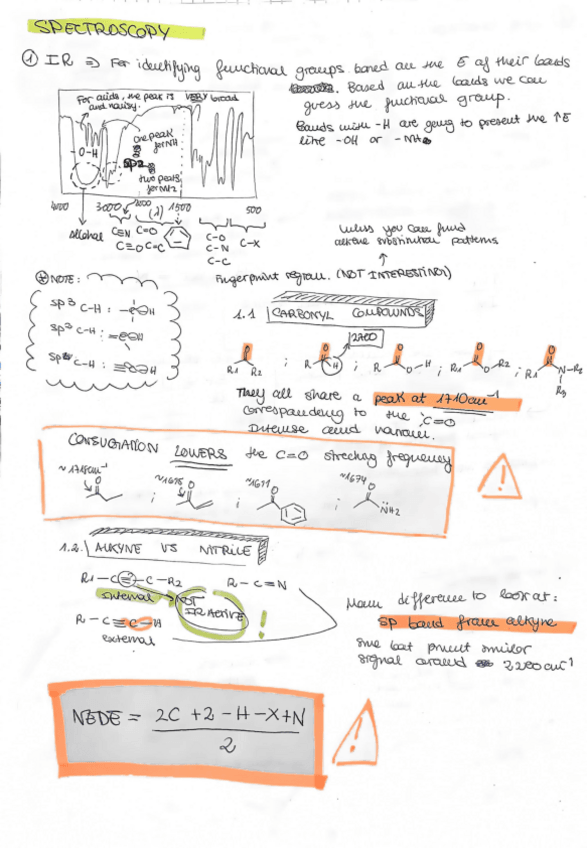 SPECTROSCOPY
① IR ⇒ For identifying functional groups based on the E of their bonds
. Based on the bonds we can
guess the functional group.
Bonds with -H are going to present the ↑E
like -OH or -NH
For acids, the peak is VERY broad
and noisy.
one peak
for NH
-O-H
sp2
two peaks
for NH2
4000 3000 2000 1500 500
(λ)
alcohol C≡N C=O
C≡C C=C
C-O
C-N C-X
C-C
unless you can find
alkene substitution patterns
↑
Fingerprint region. (NOT INTERESTING)
NOTE:
sp3 C-H :
sp2 C-H :
sp C-H :
1.1 CARBONYL COMPOUNDS
2700
O O O O O
R1 R2 ; R H ; R O-H ; R1 O-R2 ; R1 N-R2
R3
They all share a peak at 1710cm⁻¹
corresponding to the C=O
Intense and narrow.
CONJUGATION LOWERS the C=O streching frequency
~1715cm⁻¹ ~1675 ~1677 ~1674
O ; O ; O ; O
NH2
1.2. ALKYNE VS NITRILE
R1-C≡C-R2 R-C≡N
internal NOT
IR ACTIVE !
R-C≡C-H
external
Main difference to look at:
sp band from alkyne
since both present similar
signal around 2200cm⁻¹
NEDE = 2C +2-H-X+N
2
!
!